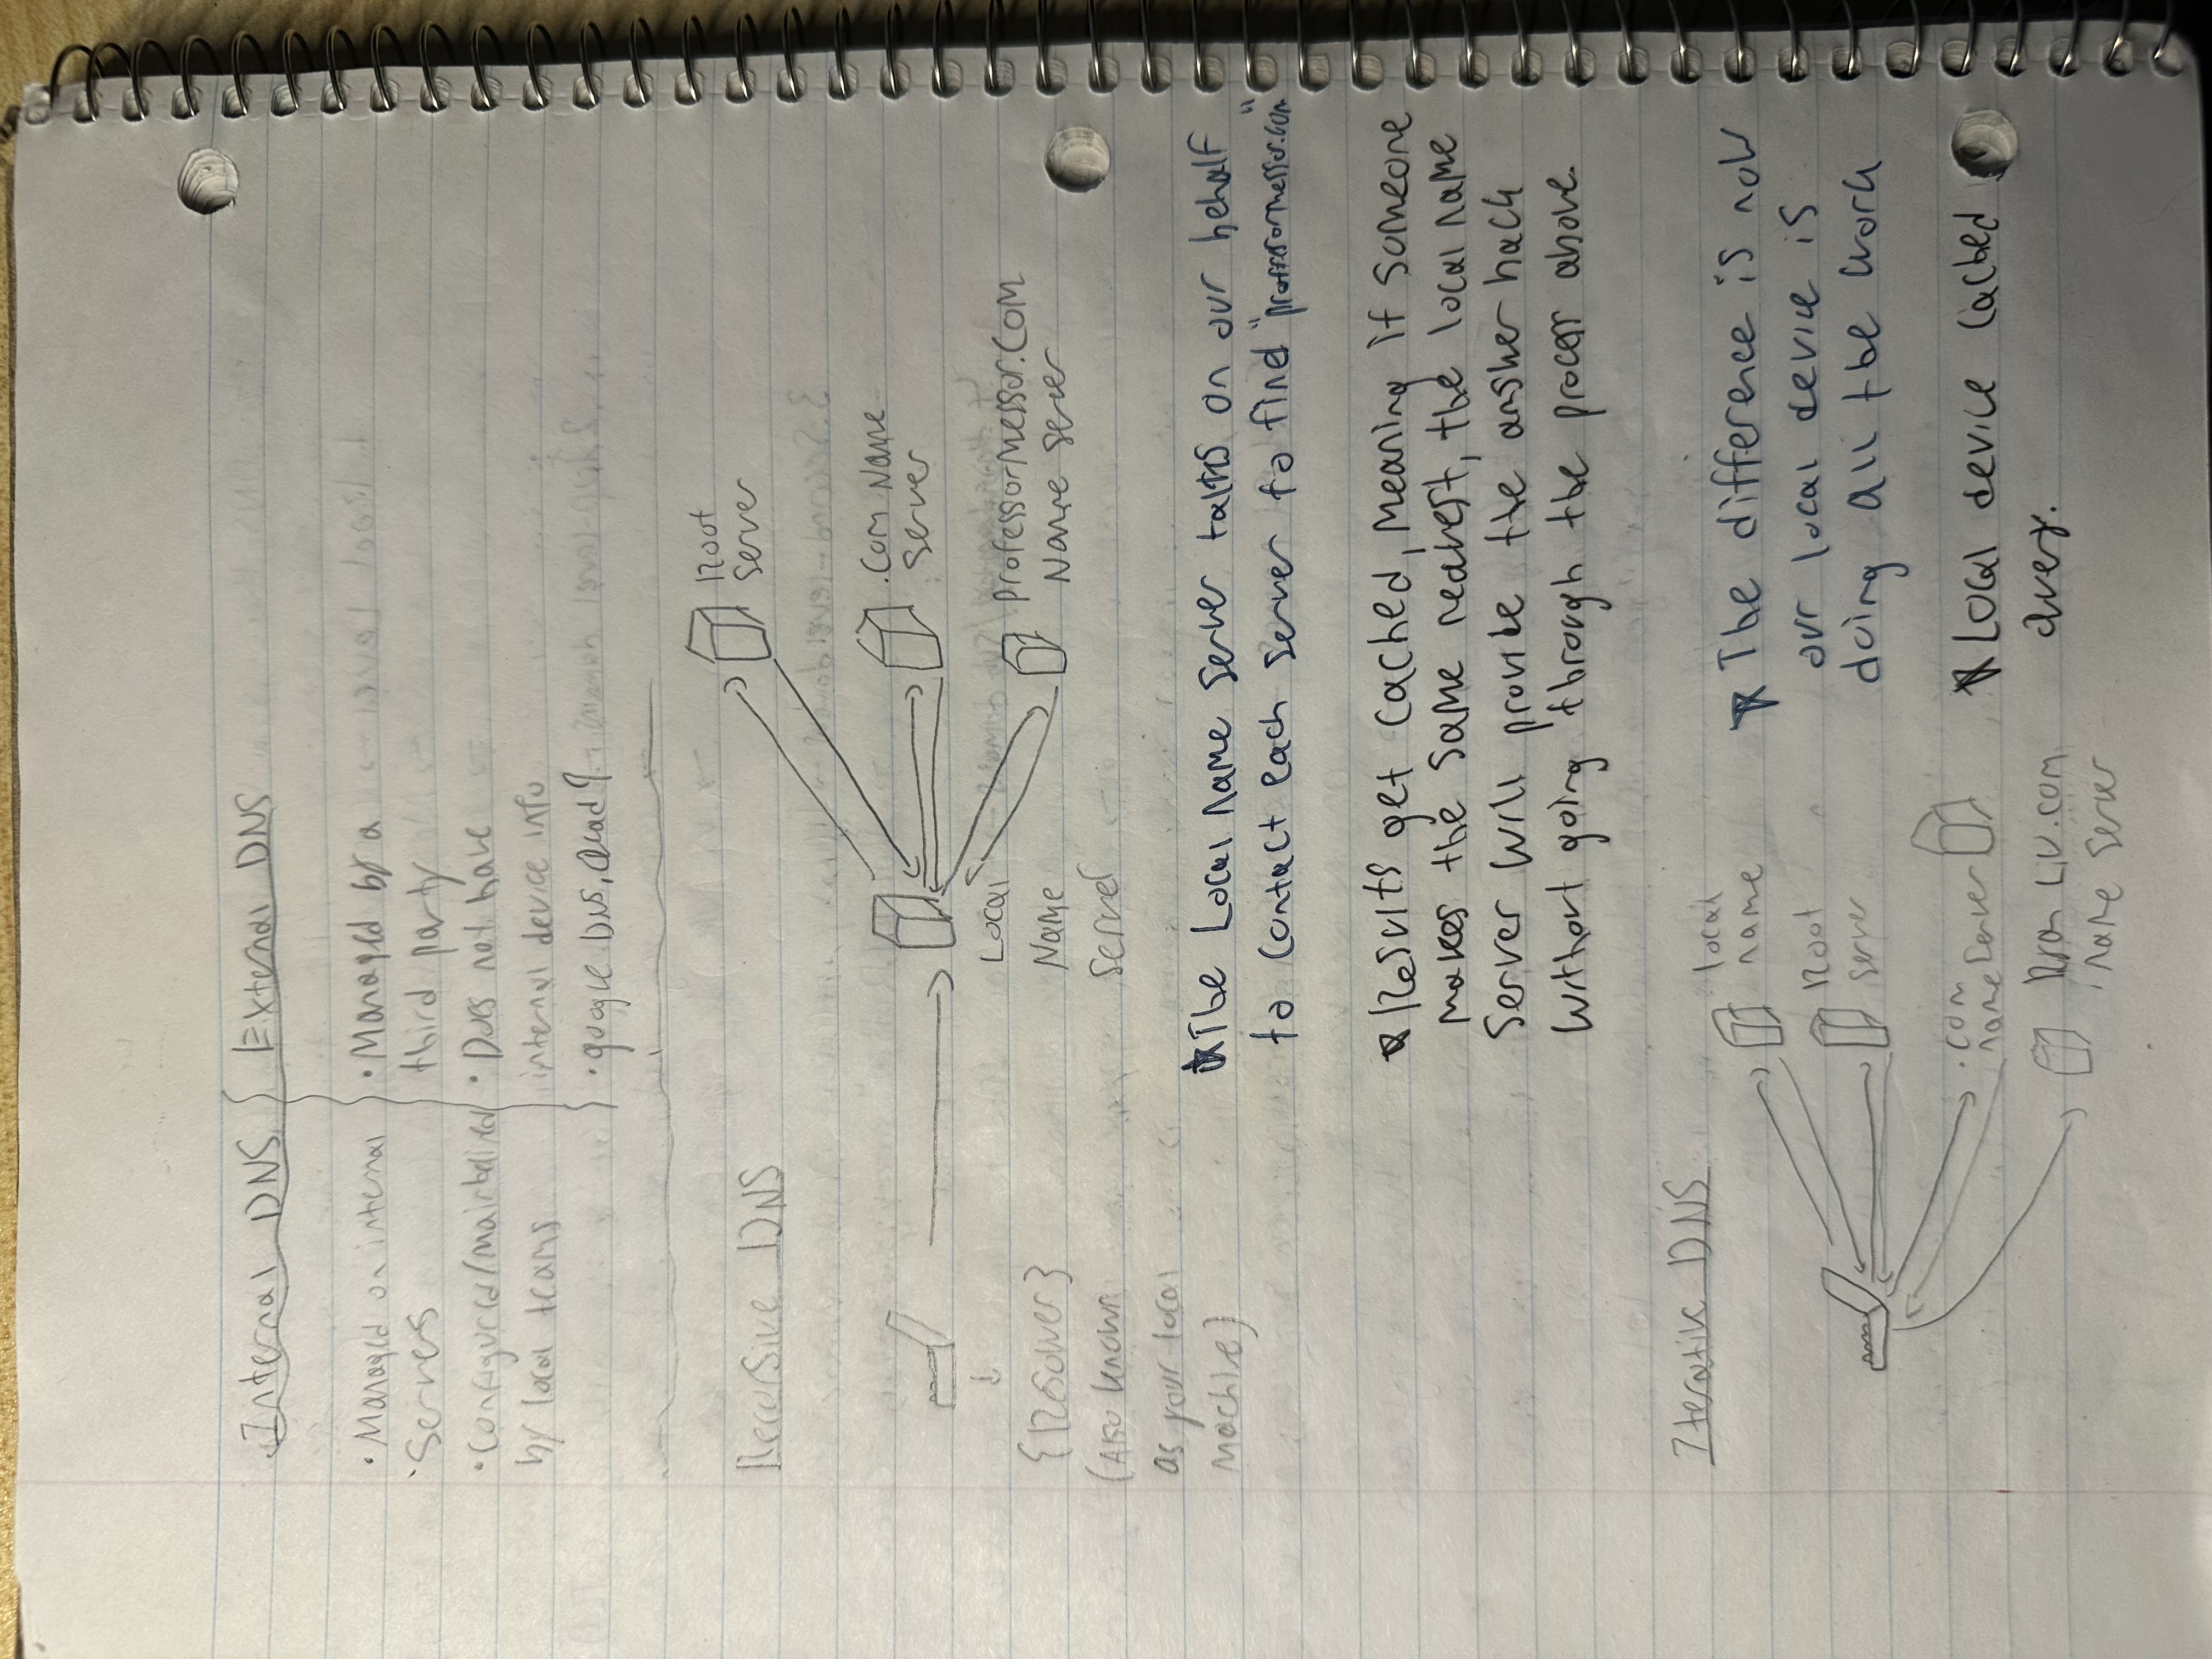 Internal DNS
External DNS
• Managed on internal
Servers
• Configured/maintained
by local teams
• Managed by a
third party
• Does not have
internal device info
• google DNS, Quad 9
Recursive DNS
Root
Server
.Com Name
Server
Professormessor.com
Name Server
Local
Name
Server
{Resolver}
(Also known
as your local
Machine)
The Local name Server talks on our behalf
to contact each server to find "professormessor.com"
Results get cached, Meaning if Someone
makes the same request, the local name
Server will provide the answer back
Without going through the process above.
Iterative DNS
local
name
Root
server
.com
name Server
Liv.com
name Server
The difference is now
our local device is
doing all the work
Local device cached
query.